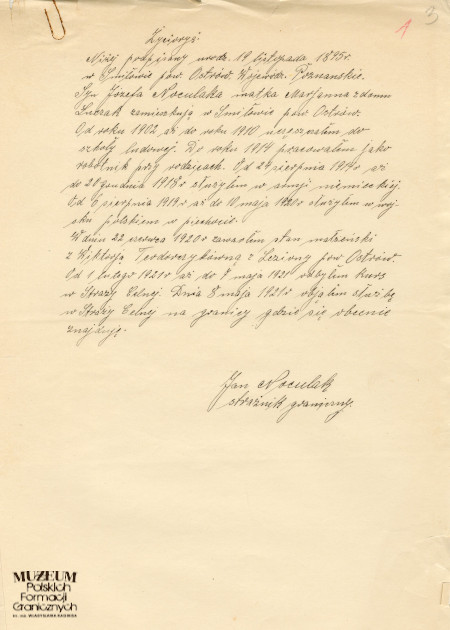 A 3
Życiorys.
Niżej podpisany urodz. 19 listopada 1895 r.
w Smiłowie pow. Ostrów. Wojewódz. Poznańskie.
Syn Józefa Noculaka matka Marjanna z domu
Luczak zamieszkują w Smiłowie pow. Ostrów.
Od roku 1902 aż do roku 1910 uczęszczałem do
szkoły ludowej. Do roku 1914 pracowałem jako
robotnik przy rodzicach. Od 24 sierpnia 1914 r aż
do 28 grudnia 1918 r służyłem w armji niemieckiej.
Od 6 sierpnia 1919 r. aż do 10 maja 1920 r służyłem w woj
sku polskiem w piechocie.
W dniu 22 czerwca 1920 r zawarłem stan małżeński
z Wiktorją Teodorczykówną z Leziony pow Ostrów.
Od 1 lutego 1921 r aż do 7 maja 1921 robyłem kurs
w Straży Celnej. Dnia 8 maja 1921 r objąłem służbę
w Straży Celnej na granicy gdzie się obecnie
znajduję.
Jan Noculak
strażnik graniczny.
MUZEUM
Polskich
Formacji
Granicznych